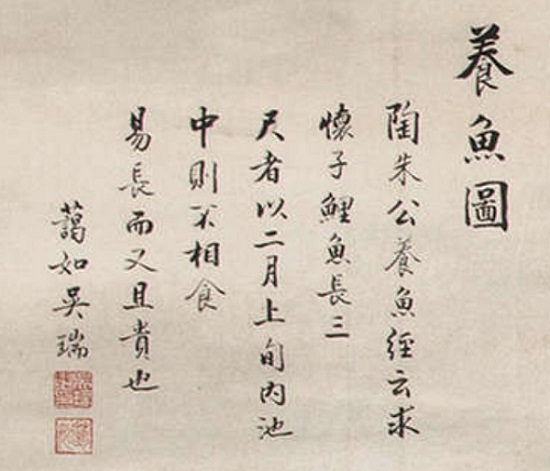 養魚圖
陶朱公養魚經云求
懷子鯉魚長三
尺者以二月上旬內池
中則不相食
易長而又且貴也
藹如吳瑞